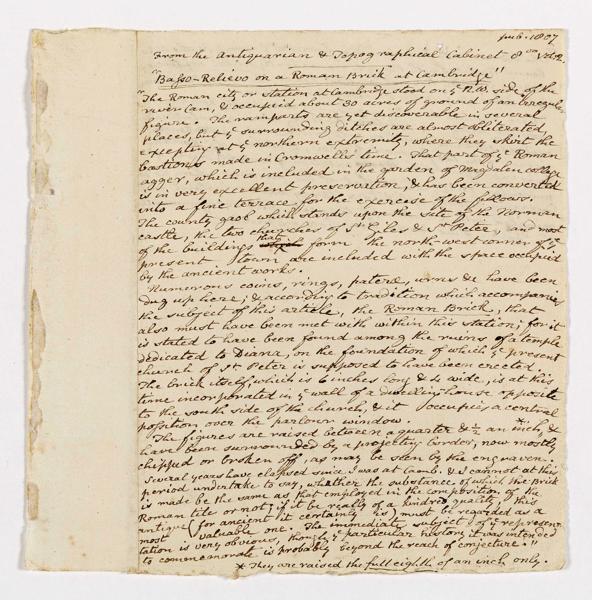 pub. 1807
From the Antiquarian & Topographical Cabinet 8vo Vol. 2.
"Basso-Relievo on a Roman Brick" at Cambridge"
"The Roman city or station at Cambridge stood on ye N.W. side of the
river Cam, & occupied about 30 acres of ground of an irregular
figure. The ramparts are yet discoverable in several
places, but ye surrounding ditches are almost obliterated,
excepting at ye northern extremity, where they skirt the
bastions made in Cromwell's time. That part of ye Roman
agger, which is included in the garden of Magdalen college
is in very excellent preservation, & has been converted
into a fine terrace for the exercise of the fellows.
The county gaol which stands upon the site of the Norman
castle, the two churches of St Giles & St Peter, and most
of the buildings that form the north-west corner of ye
present town are included with the space occupied
by the ancient works.
Numerous coins, rings, pateræ, urns &c have been
dug up here; & according to tradition which accompanies
the subject of this article, the Roman Brick, that
also must have been met with within this station; for it
is stated to have been found among the ruins of a temple
dedicated to Diana, on the foundation of which ye present
church of St Peter is supposed to have been erected.
The brick itself, which is 6 inches long & 4 wide, is at this
time incorporated in ye wall of a dwelling-house opposite
to the south side of the church, & it occupies a central
position over the parlour window.
The figures are raised between a quarter & ½ an inch, &
have been surrounded by a projecting border, now mostly
chipped or broken off, as may be seen by the engraven.
Several years have elapsed since I was at Camb. & I cannot at this
period undertake to say, whether the substance of which the Brick
is made be the same as that employed in the composition of the
Roman tile or not; if it be really of a kindred quality, this
antique (for ancient it certainly is) must be regarded as a
most valuable one. The immediate subject of ye represen-
tation is very obvious, though ye particular history it was intended
to commemorate is probably beyond the reach of conjecture."
* They are raised the full eighth of an inch only.